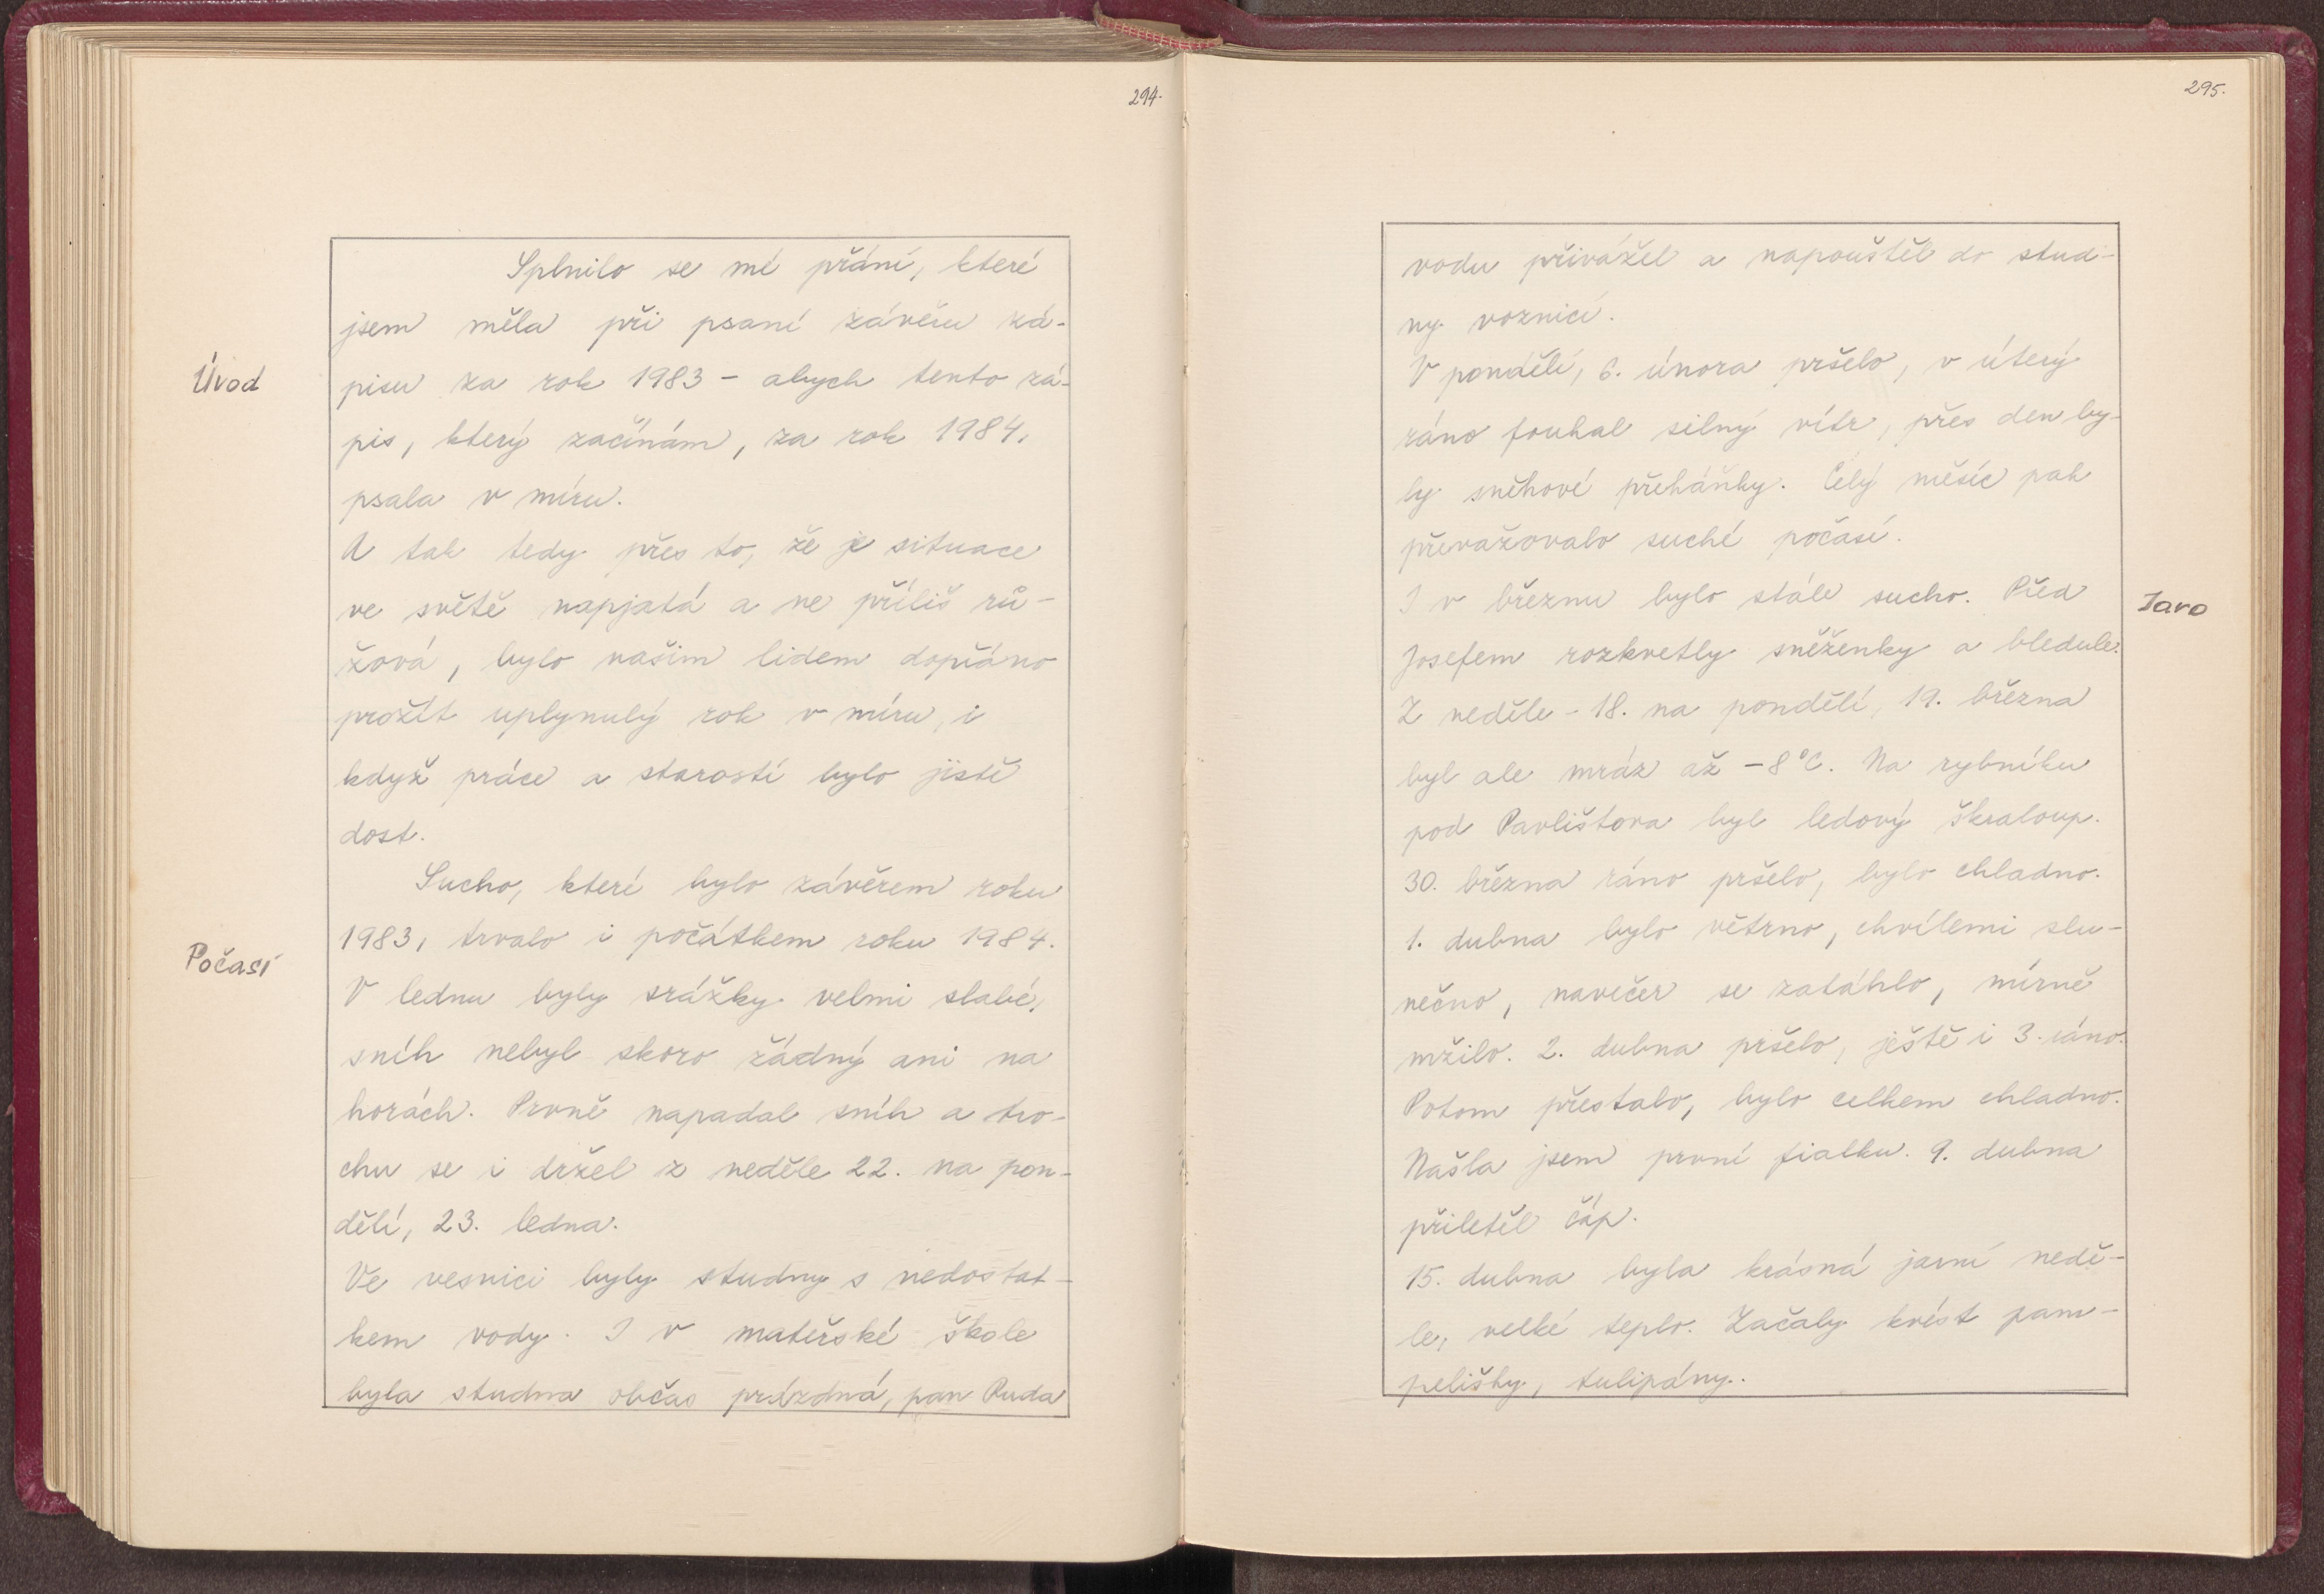 294.
Splnilo se mé přání, které
jsem měla při psaní závěru zá-
Úvod
pisu za rok 1983 - abych tento zá-
pis, který začínám, za rok 1984,
psala v míru.
A tak tedy přes to, že je situace
ve světě napjatá a ne příliš rů-
žová, bylo našim lidem dopřáno
prožít uplynulý rok v míru, i
když práce a starostí bylo jistě
dost.
Sucho, které bylo závěrem roku
1983, trvalo i počátkem roku 1984.
Počasí
V lednu byly srážky velmi slabé,
sníh nebyl skoro žádný ani na
horách. Prvně napadal sníh a tro-
chu se i držel z neděle 22. na pon-
dělí, 23. ledna.
Ve vesnici byly studny s nedostat-
kem vody. I v mateřské škole
byla studna občas prázdná, pan Ruda
295.
vodu přivážel a napouštěl do stud-
ny voznicí.
V pondělí, 6. února pršelo, v úterý
ráno foukal silný vítr, přes den by-
ly sněhové přeháňky. Celý měsíc pak
převažovalo suché počasí.
I v březnu bylo stále sucho. Před
Jaro
Josefem rozkvetly sněženky a bledule.
Z neděle - 18. na pondělí, 19. března
byl ale mráz až -8°C. Na rybníku
pod Pavlištova byl ledový škraloup.
30. března ráno pršelo, bylo chladno.
1. dubna bylo větrno, chvílemi slu-
nečno, navečer se zatáhlo, mírně
mžilo. 2. dubna pršelo, ještě i 3. ráno.
Potom přestalo, bylo celkem chladno.
Našla jsem první fialku. 9. dubna
přiletěl čáp.
15. dubna byla krásná jarní nedě-
le, velké teplo. Začaly kvést pam-
pelišky, tulipány.